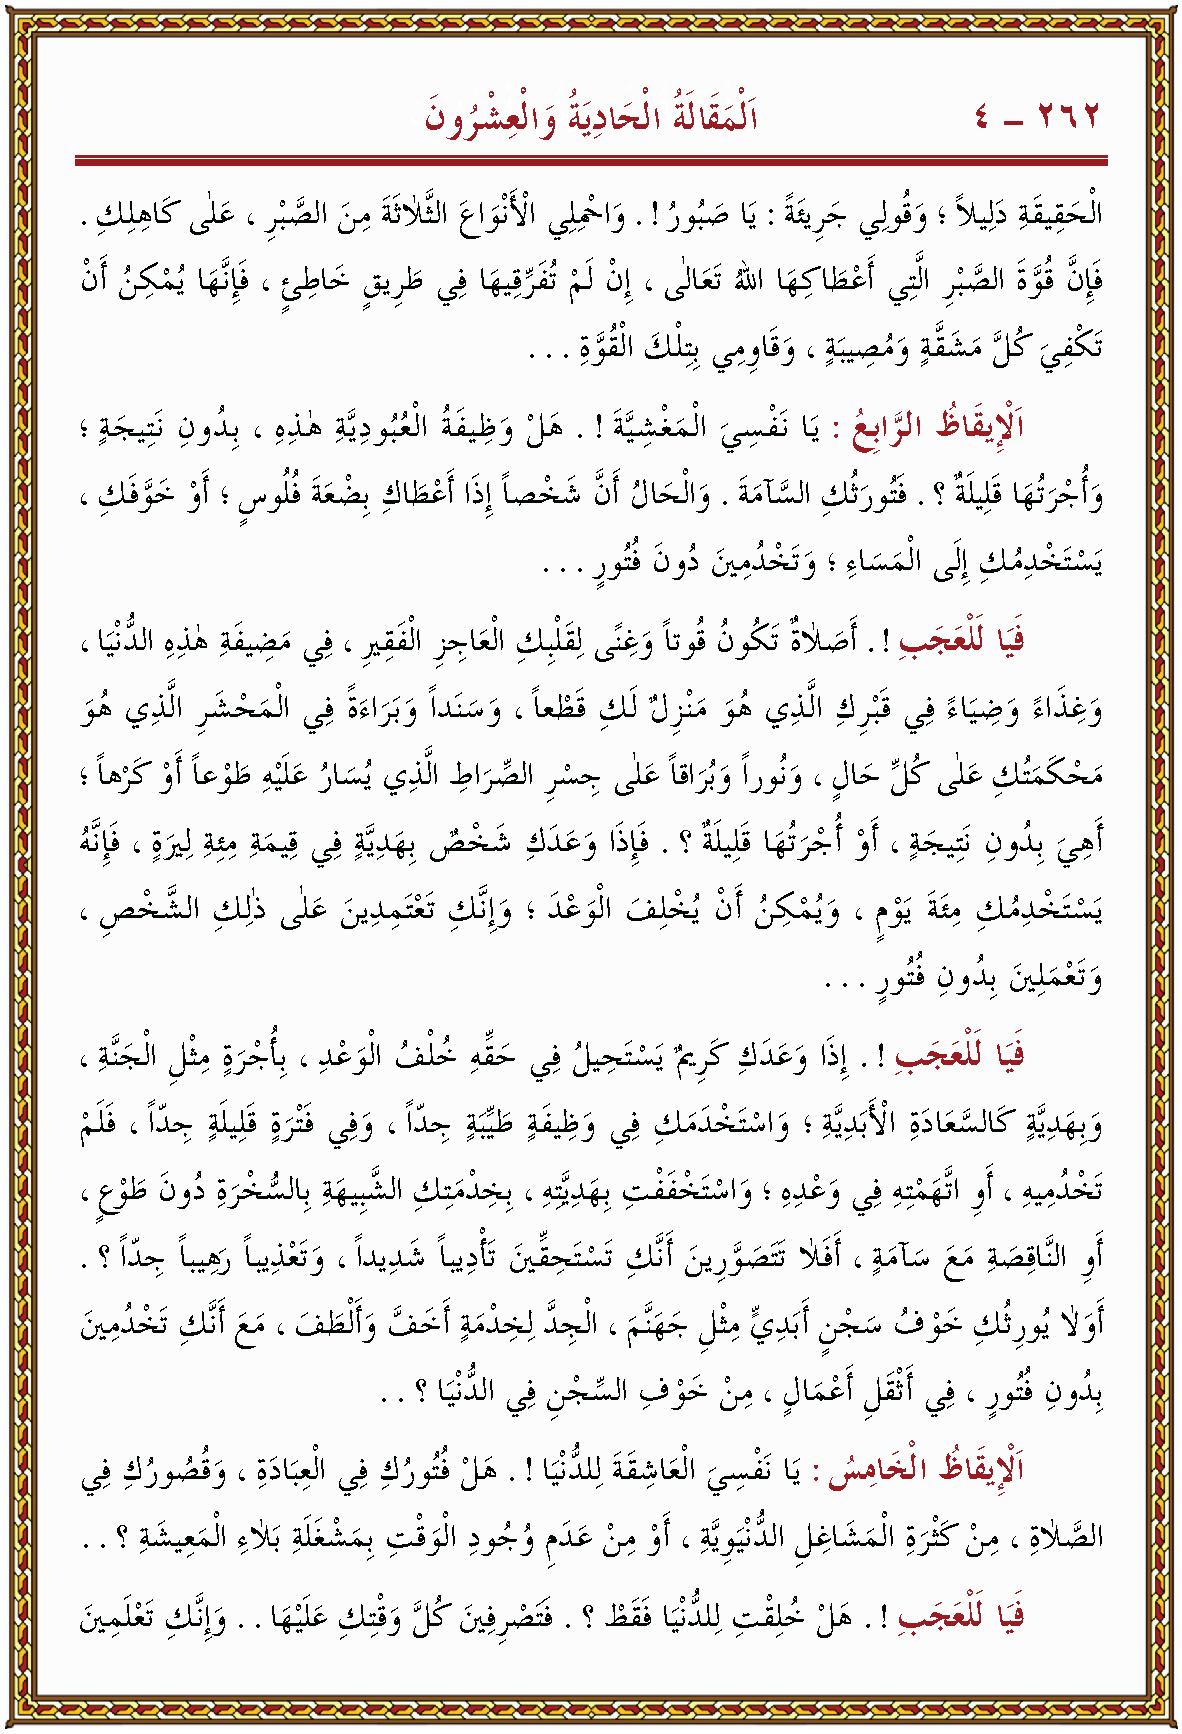 ٢٦٢ – ٤ اَلْمَقَالَةُ الْحَادِيَةُ وَالْعِشْرُونَ
الْحَقِيقَةِ دَلِيلاً ؛ وَقُولِي جَرِيئَةً : يَا صَبُورُ ! . وَاحْمِلِي الْأَنْوَاعَ الثَّلاٰثَةَ مِنَ الصَّبْرِ ، عَلٰى كَاهِلِكِ .
فَإِنَّ قُوَّةَ الصَّبْرِ الَّتِي أَعْطَاكِهَا اللهُ تَعَالٰى ، إِنْ لَمْ تُفَرِّقِيهَا فِي طَرِيقٍ خَاطِئٍ ، فَإِنَّهَا يُمْكِنُ أَنْ
تَكْفِيَ كُلَّ مَشَقَّةٍ وَمُصِيبَةٍ ، وَقَاوِمِي بِتِلْكَ الْقُوَّةِ . . .
اَلْإِيقَاظُ الرَّابِعُ : يَا نَفْسِيَ الْمَغْشِيَّةَ ! . هَلْ وَظِيفَةُ الْعُبُودِيَّةِ هٰذِهِ ، بِدُونِ نَتِيجَةٍ ؛
وَأُجْرَتُهَا قَلِيلَةٌ ؟ . فَتُورَثُكِ السَّآمَةَ . وَالْحَالُ أَنَّ شَخْصاً إِذَا أَعْطَاكِ بِضْعَةَ فُلُوسٍ ؛ أَوْ خَوَّفَكِ ،
يَسْتَخْدِمُكِ إِلَى الْمَسَاءِ ؛ وَتَخْدُمِينَ دُونَ فُتُورٍ . . .
فَيَا لَلْعَجَبِ ! . أَصَلاٰةٌ تَكُونُ قُوتاً وَغِنىً لِقَلْبِكِ الْعَاجِزِ الْفَقِيرِ ، فِي مَضِيفَةِ هٰذِهِ الدُّنْيَا ،
وَغِذَاءً وَضِيَاءً فِي قَبْرِكِ الَّذِي هُوَ مَنْزِلٌ لَكِ قَطْعاً ، وَسَنَداً وَبَرَاءَةً فِي الْمَحْشَرِ الَّذِي هُوَ
مَحْكَمَتُكِ عَلٰى كُلِّ حَالٍ ، وَنُوراً وَبُرَاقاً عَلٰى جِسْرِ الصِّرَاطِ الَّذِي يُسَارُ عَلَيْهِ طَوْعاً أَوْ كَرْهاً ؛
أَهِيَ بِدُونِ نَتِيجَةٍ ، أَوْ أُجْرَتُهَا قَلِيلَةٌ ؟ . فَإِذَا وَعَدَكِ شَخْصٌ بِهَدِيَّةٍ فِي قِيمَةِ مِئَةِ لِيَرةٍ ، فَإِنَّهُ
يَسْتَخْدِمُكِ مِئَةَ يَوْمٍ ، وَيُمْكِنُ أَنْ يُخْلِفَ الْوَعْدَ ؛ وَإِنَّكِ تَعْتَمِدِينَ عَلٰى ذٰلِكِ الشَّخْصِ ،
وَتَعْمَلِينَ بِدُونِ فُتُورٍ . . .
فَيَا لَلْعَجَبِ ! . إِذَا وَعَدَكِ كَرِيمٌ يَسْتَحِيلُ فِي حَقِّهِ خُلْفُ الْوَعْدِ ، بِأُجْرَةٍ مِثْلِ الْجَنَّةِ ،
وَبِهَدِيَّةٍ كَالسَّعَادَةِ الْأَبَدِيَّةِ ؛ وَاسْتَخْدَمَكِ فِي وَظِيفَةٍ طَيِّبَةٍ جِدّاً ، وَفِي فَتْرَةٍ قَلِيلَةٍ جِدّاً ، فَلَمْ
تَخْدُمِيهِ ، أَوِ اتَّهَمْتِهِ فِي وَعْدِهِ ؛ وَاسْتَخْفَفْتِ بِهَدِيَّتِهِ ، بِخِدْمَتِكِ الشَّبِيهَةِ بِالسُّخْرَةِ دُونَ طَوْعٍ ،
أَوِ النَّاقِصَةِ مَعَ سَآمَةٍ ، أَفَلاٰ تَتَصَوَّرِينَ أَنَّكِ تَسْتَحِقِّينَ تَأْدِيباً شَدِيداً ، وَتَعْذِيباً رَهِيباً جِدّاً ؟ .
أَوَلاٰ يُورِثُكِ خَوْفُ سَجْنٍ أَبَدِيٍّ مِثْلِ جَهَنَّمَ ، الْجِدَّ لِخِدْمَةٍ أَخَفَّ وَأَلْطَفَ ، مَعَ أَنَّكِ تَخْدُمِينَ
بِدُونِ فُتُورٍ ، فِي أَثْقَلِ أَعْمَالٍ ، مِنْ خَوْفِ السِّجْنِ فِي الدُّنْيَا ؟ . .
اَلْإِيقَاظُ الْخَامِسُ : يَا نَفْسِيَ الْعَاشِقَةَ لِلدُّنْيَا ! . هَلْ فُتُورُكِ فِي الْعِبَادَةِ ، وَقُصُورُكِ فِي
الصَّلاٰةِ ، مِنْ كَثْرَةِ الْمَشَاغِلِ الدُّنْيَوِيَّةِ ، أَوْ مِنْ عَدَمِ وُجُودِ الْوَقْتِ بِمَشْغَلَةِ بَلاٰءِ الْمَعِيشَةِ ؟ . .
فَيَا لَلْعَجَبِ ! . هَلْ خُلِقْتِ لِلدُّنْيَا فَقَطْ ؟ . فَتَصْرِفِينَ كُلَّ وَقْتِكِ عَلَيْهَا . . وَإِنَّكِ تَعْلَمِينَ